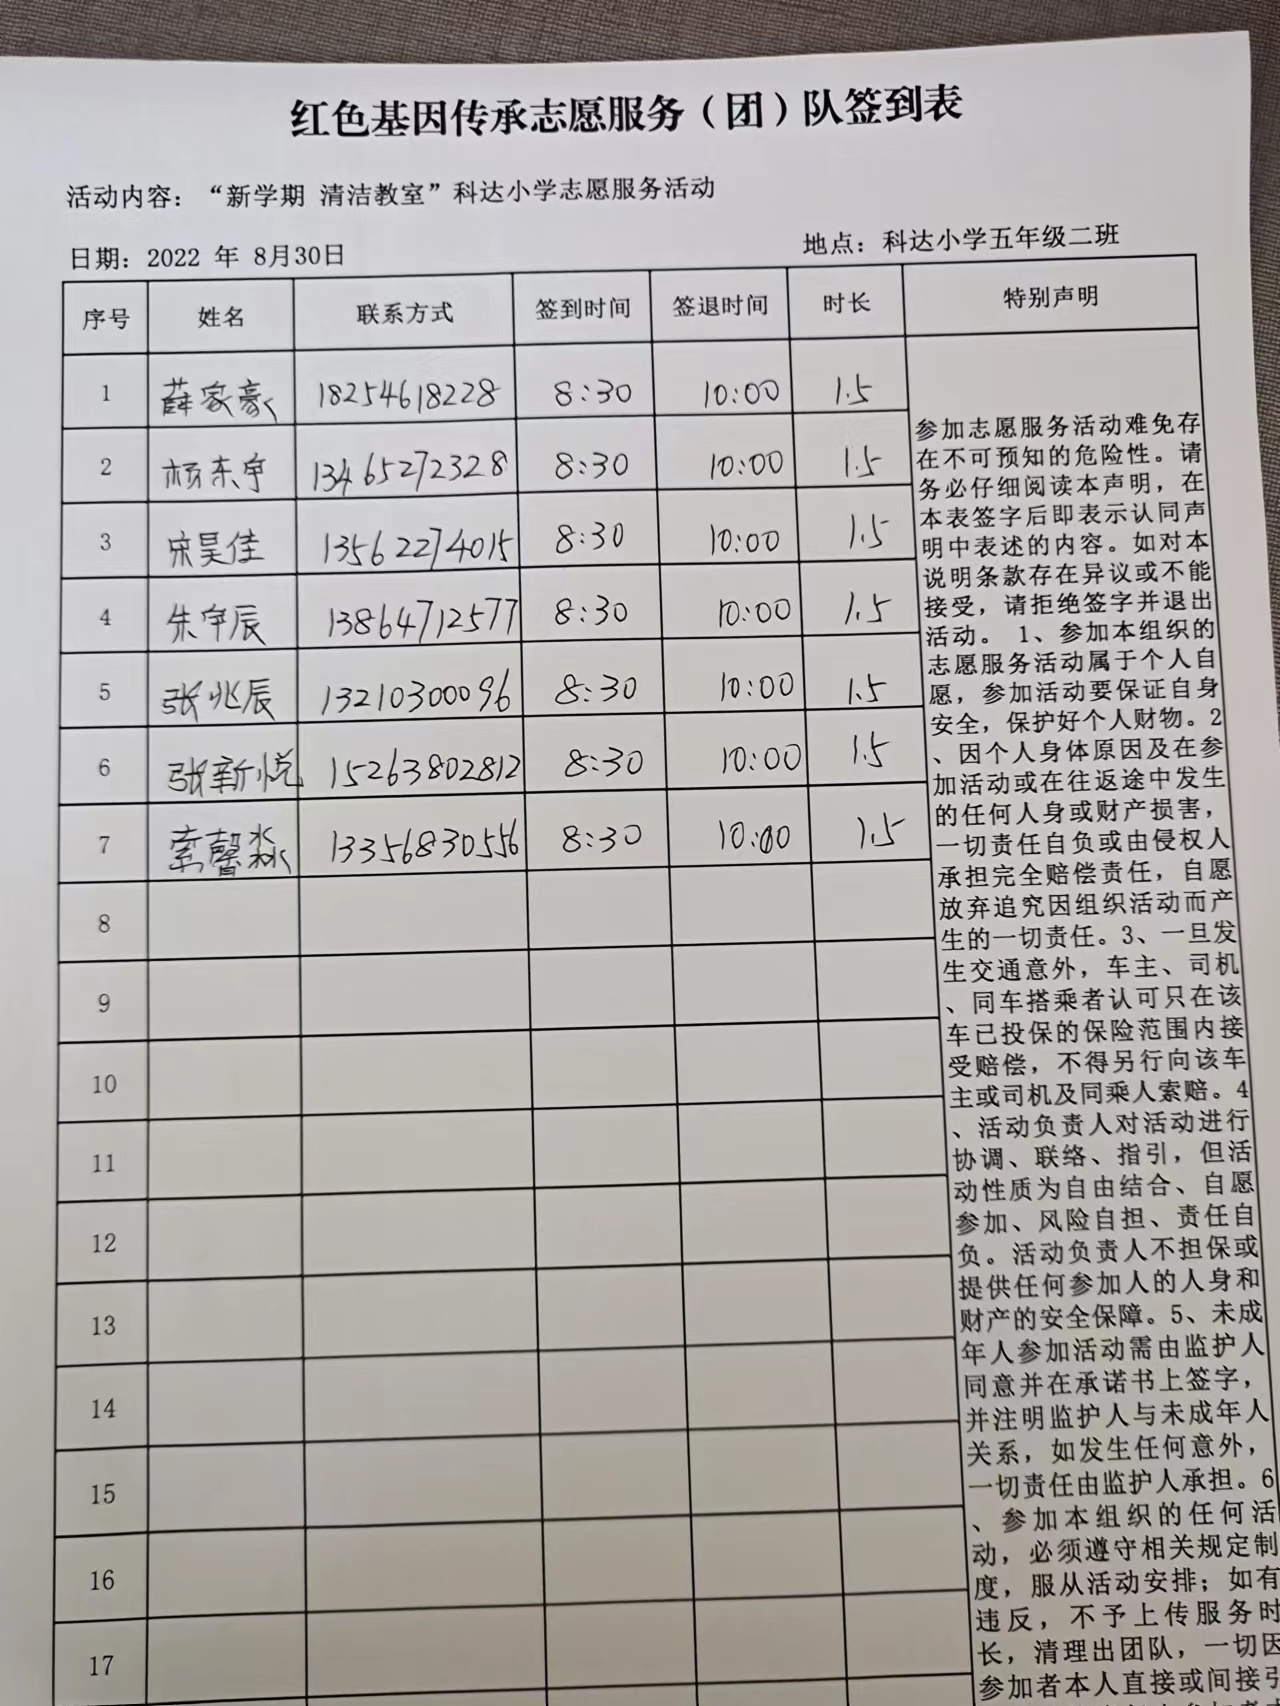 红色基因传承志愿服务（团）队签到表
活动内容：“新学期 清洁教室”科达小学志愿服务活动
日期：2022 年 8月30日
地点：科达小学五年级二班
序号 姓名 联系方式 签到时间 签退时间 时长 特别声明
1 薛家豪 18254618228 8:30 10:00 1.5
2 杨东宇 13465272328 8:30 10:00 1.5
3 宋昊佳 13562274015 8:30 10:00 1.5
4 朱宇辰 13864712577 8:30 10:00 1.5
5 张兆辰 13210300096 8:30 10:00 1.5
6 张新悦 15263802812 8:30 10:00 1.5
7 索馨淼 13356830556 8:30 10:00 1.5
8
9
10
11
12
13
14
15
16
17
参加志愿服务活动难免存
在不可预知的危险性。请
务必仔细阅读本声明，在
本表签字后即表示认同声
明中表述的内容。如对本
说明条款存在异议或不能
接受，请拒绝签字并退出
活动。 1、参加本组织的
志愿服务活动属于个人自
愿，参加活动要保证自身
安全，保护好个人财物。2
、因个人身体原因及在参
加活动或在往返途中发生
的任何人身或财产损害，
一切责任自负或由侵权人
承担完全赔偿责任，自愿
放弃追究因组织活动而产
生的一切责任。3、一旦发
生交通意外，车主、司机
、同车搭乘者认可只在该
车已投保的保险范围内接
受赔偿，不得另行向该车
主或司机及同乘人索赔。4
、活动负责人对活动进行
协调、联络、指引，但活
动性质为自由结合、自愿
参加、风险自担、责任自
负。活动负责人不担保或
提供任何参加人的人身和
财产的安全保障。5、未成
年人参加活动需由监护人
同意并在承诺书上签字，
并注明监护人与未成年人
关系，如发生任何意外，
一切责任由监护人承担。6
、参加本组织的任何活
动，必须遵守相关规定制
度，服从活动安排；如有
违反，不予上传服务时
长，清理出团队，一切因
参加者本人直接或间接引